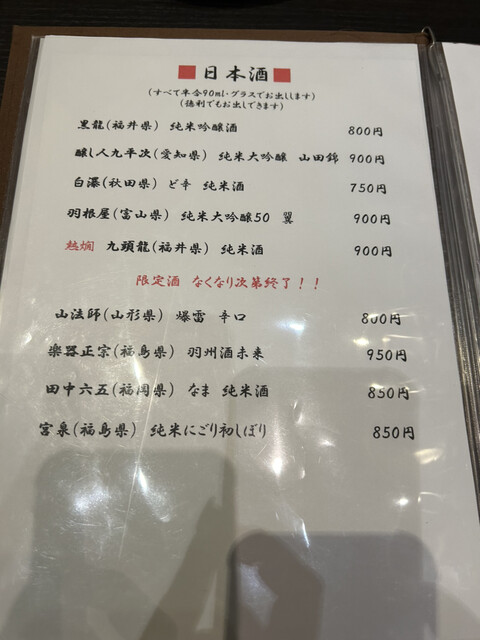 ■日本酒■
(すべて半合90ml・グラスでお出しします)
(徳利でもお出しできます)
黒龍(福井県) 純米吟醸酒 800円
醸し人九平次(愛知県) 純米大吟醸 山田錦 900円
白瀑(秋田県) ど辛 純米酒 750円
羽根屋(富山県) 純米大吟醸50 翼 900円
熱燗 九頭龍(福井県) 純米酒 900円
限定酒 なくなり次第終了!!
山法師(山形県) 爆雷 辛口 800円
楽器正宗(福島県) 羽州酒未来 950円
田中六五(福岡県) なま 純米酒 850円
宮泉(福島県) 純米にごり初しぼり 850円